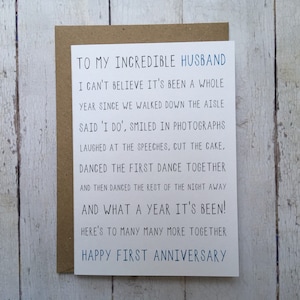 TO MY INCREDIBLE HUSBAND
I CAN'T BELIEVE IT'S BEEN A WHOLE
YEAR SINCE WE WALKED DOWN THE AISLE
SAID 'I DO', SMILED IN PHOTOGRAPHS
LAUGHED AT THE SPEECHES, CUT THE CAKE,
DANCED THE FIRST DANCE TOGETHER
AND THEN DANCED THE REST OF THE NIGHT AWAY
AND WHAT A YEAR IT'S BEEN!
HERE'S TO MANY MANY MORE TOGETHER
HAPPY FIRST ANNIVERSARY